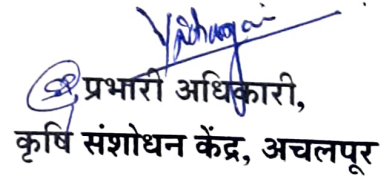 प्रभारी अधिकारी,
कृषि संशोधन केंद्र, अचलपूर